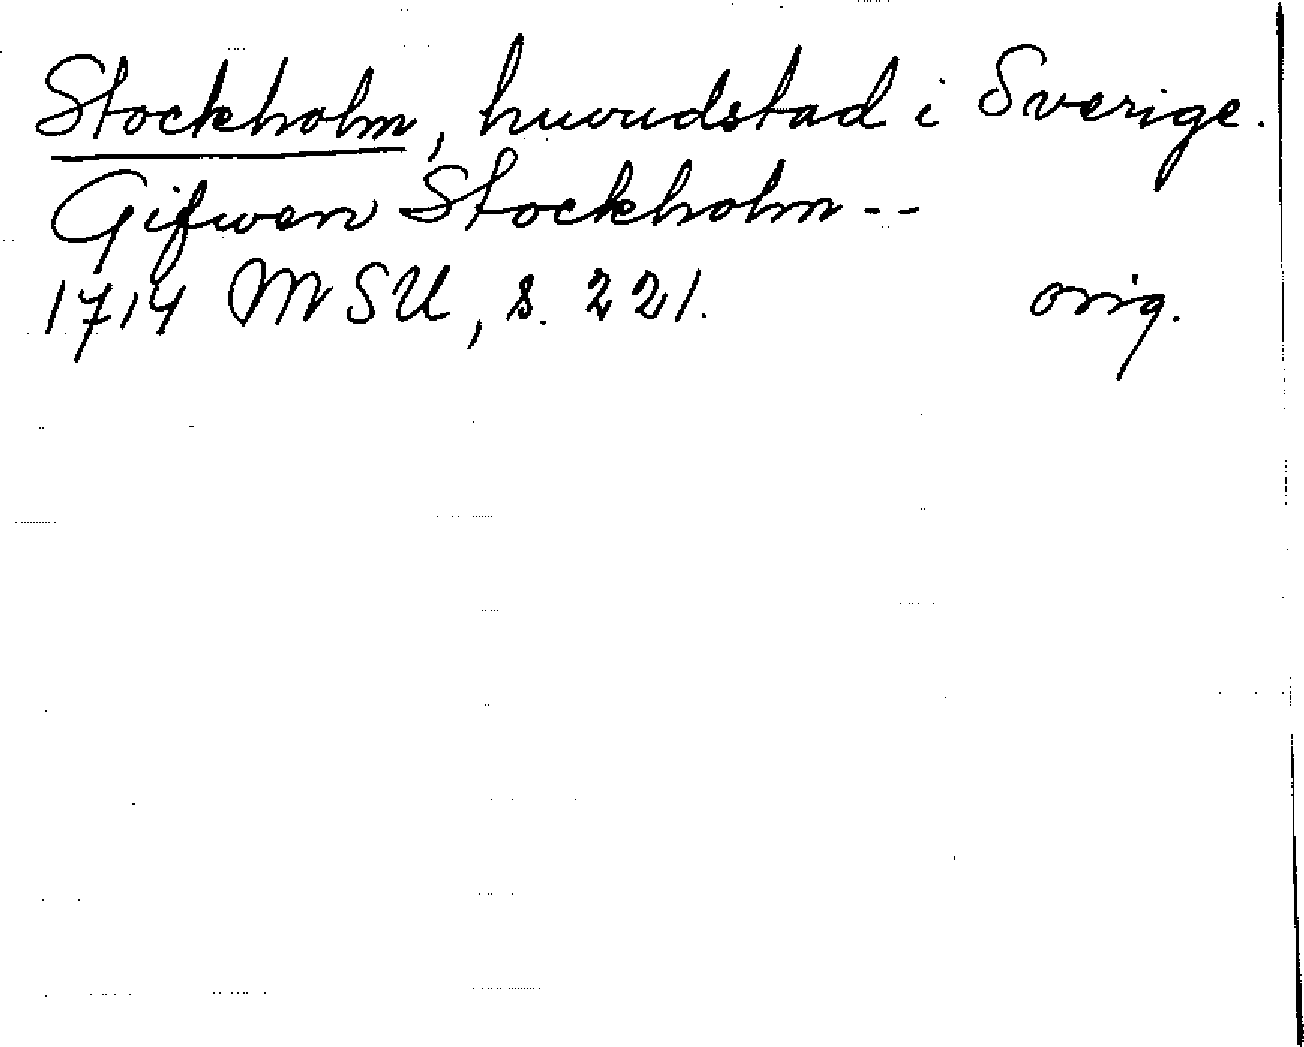 Stockholm, huvudstad i Sverige.
Gifwen Stockholm--
1714 MSU, s. 221. orig.